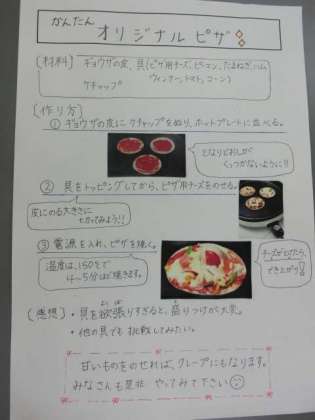 かんたん
オリジナル ピザ
〔材料〕 ギョウザの皮、具(ピザ用チーズ、ベーコン、たまねぎ、ハム
ウィンナー、トマト、コーン)
ケチャップ
〔作り方〕
① ギョウザの皮にケチャップをぬり、ホットプレートに並べる。
となりどおしが
くっつかないように!!
② 具をトッピングしてから、ピザ用チーズをのせる。
皮にのる大きさに
切ってみよう!!
③ 電源を入れ、ピザを焼く。
温度は、150℃で
4〜5分ほど焼きます。
チーズがとけたら、
でき上がり!
〔感想〕・具を欲張りすぎると、盛りつけが大変。
・他の具でも挑戦してみたい。
甘いものをのせれば、クレープにもなります。
みなさんも是非 やってみて下さい